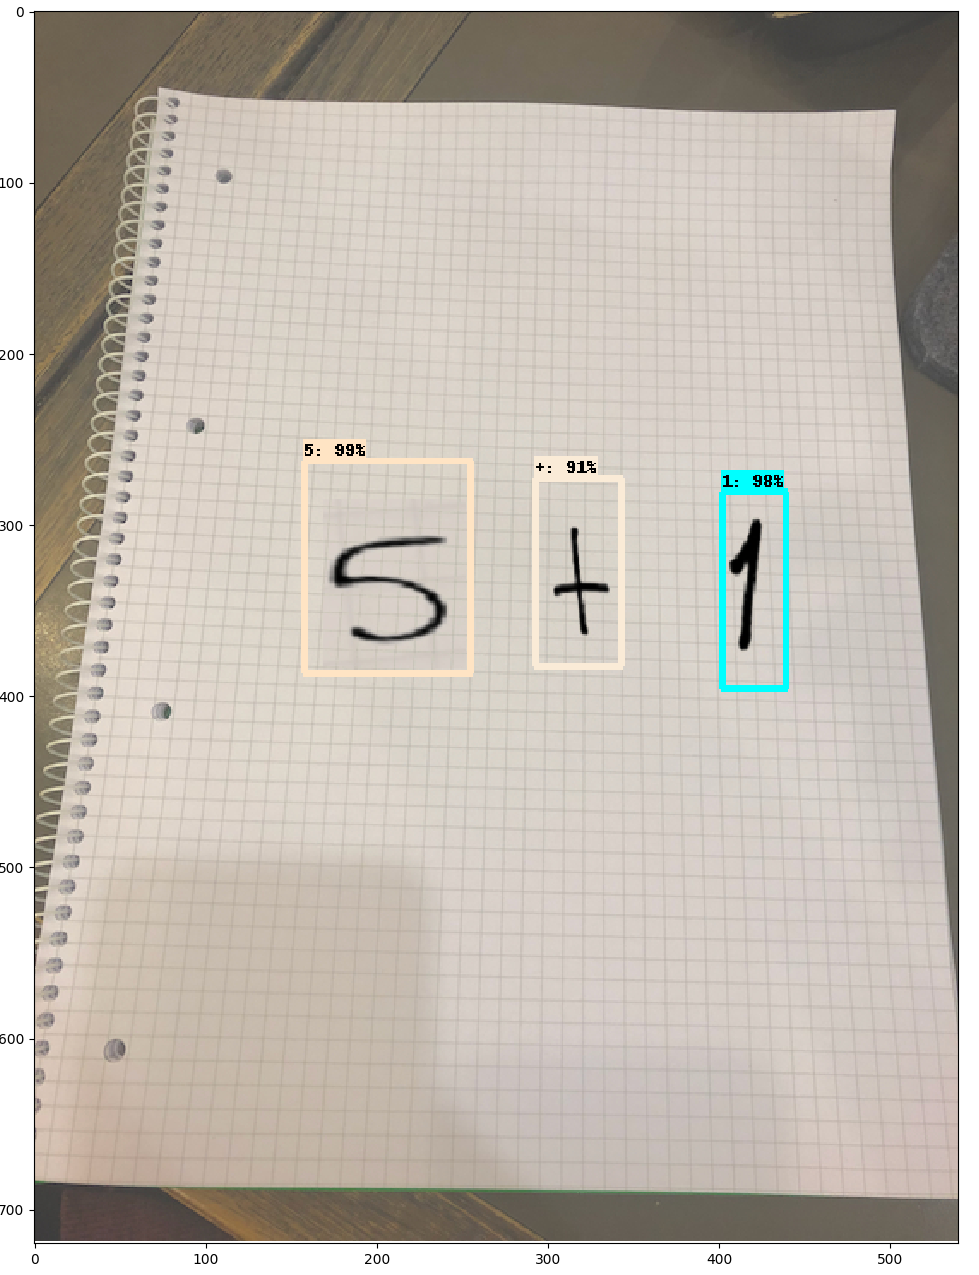 0
100
200
300
400
500
600
700
5: 99%
+: 91%
1: 98%
5 + 1
0 100 200 300 400 500